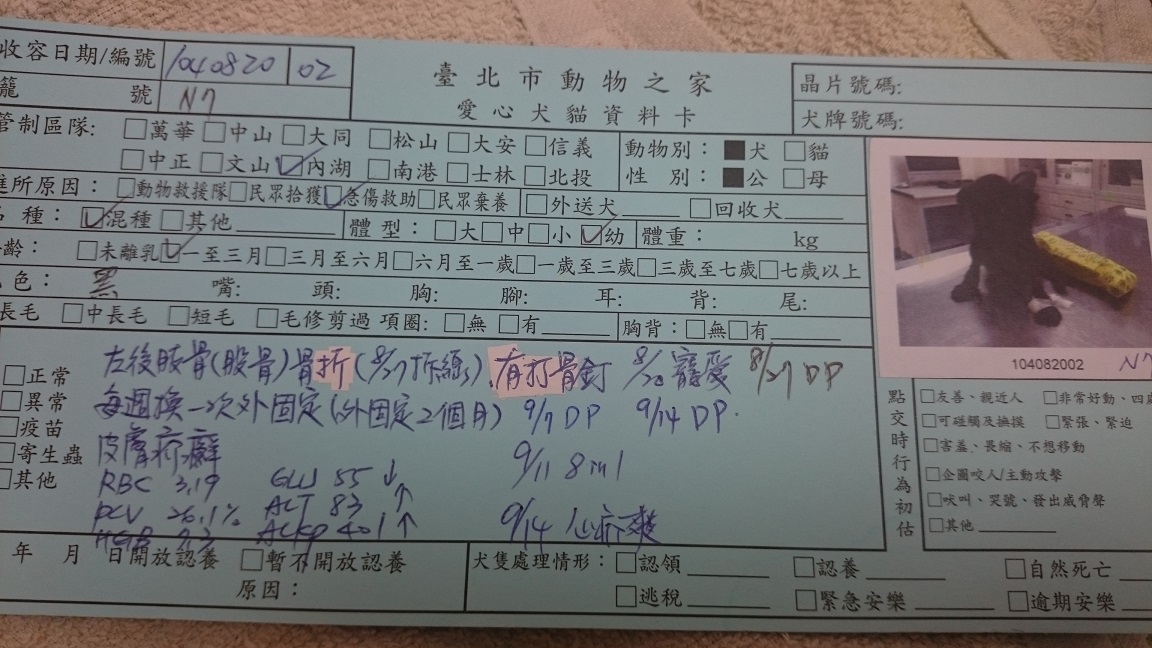 收容日期/編號 1040820 02
籠 號 N7
臺北市動物之家
愛心犬貓資料卡
晶片號碼:
犬牌號碼:
管制區隊: □萬華 □中山 □大同 □松山 □大安 □信義
□中正 □文山 ☑內湖 □南港 □士林 □北投
動物別: ■犬 □貓
性 別: ■公 □母
進所原因: □動物救援隊 □民眾拾獲 ☑急傷救助 □民眾棄養 □外送犬____ □回收犬____
種: ☑混種 □其他______ 體型: □大 □中 □小 ☑幼 體重: kg
齡: □未離乳 ☑一至三月 □三月至六月 □六月至一歲 □一歲至三歲 □三歲至七歲 □七歲以上
色: 黑 嘴: 頭: 胸: 腳: 耳: 背: 尾:
長毛 □中長毛 □短毛 □毛修剪過 項圈: □無 □有____ 胸背: □無 □有____
□正常
□異常
□疫苗
□寄生蟲
□其他
左後肢骨(股骨)骨折(8/27拆線)、有打骨釘 8/20 寵愛 8/27 DP
每週換一次外固定(外固定2個月) 9/7 DP 9/14 DP.
皮膚疥癬 9/11 8ml
RBC 3.19 GLU 55 ↓
PCV 26.1% ALT 83 ↑
HGB 9.3 ALKP 401 ↑ 9/14 心疥爽
104082002 N7
點交時行為初估
□友善、親近人 □非常好動、四處
□可碰觸及撫摸 □緊張、緊迫
□害羞、畏縮、不想移動
□企圖咬人/主動攻擊
□吠叫、哭號、發出威脅聲
□其他______
年 月 日開放認養 □暫不開放認養
原因:
犬隻處理情形: □認領______ □認養______ □自然死亡__
□逃脫______ □緊急安樂______ □逾期安樂__